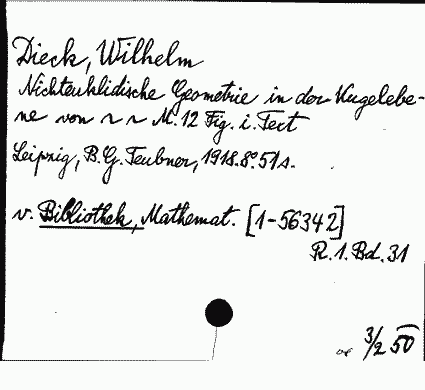 Dieck, Wilhelm
Nichteuklidische Geometrie in der Kugelebe-
ne von ~ ~ M. 12 Fig. i. Text
Leipzig, B. G. Teubner, 1918. 8° 51 s.
v. Bibliothek, Mathemat. [1-56342]
R. 1. Bd. 31
3/2 50